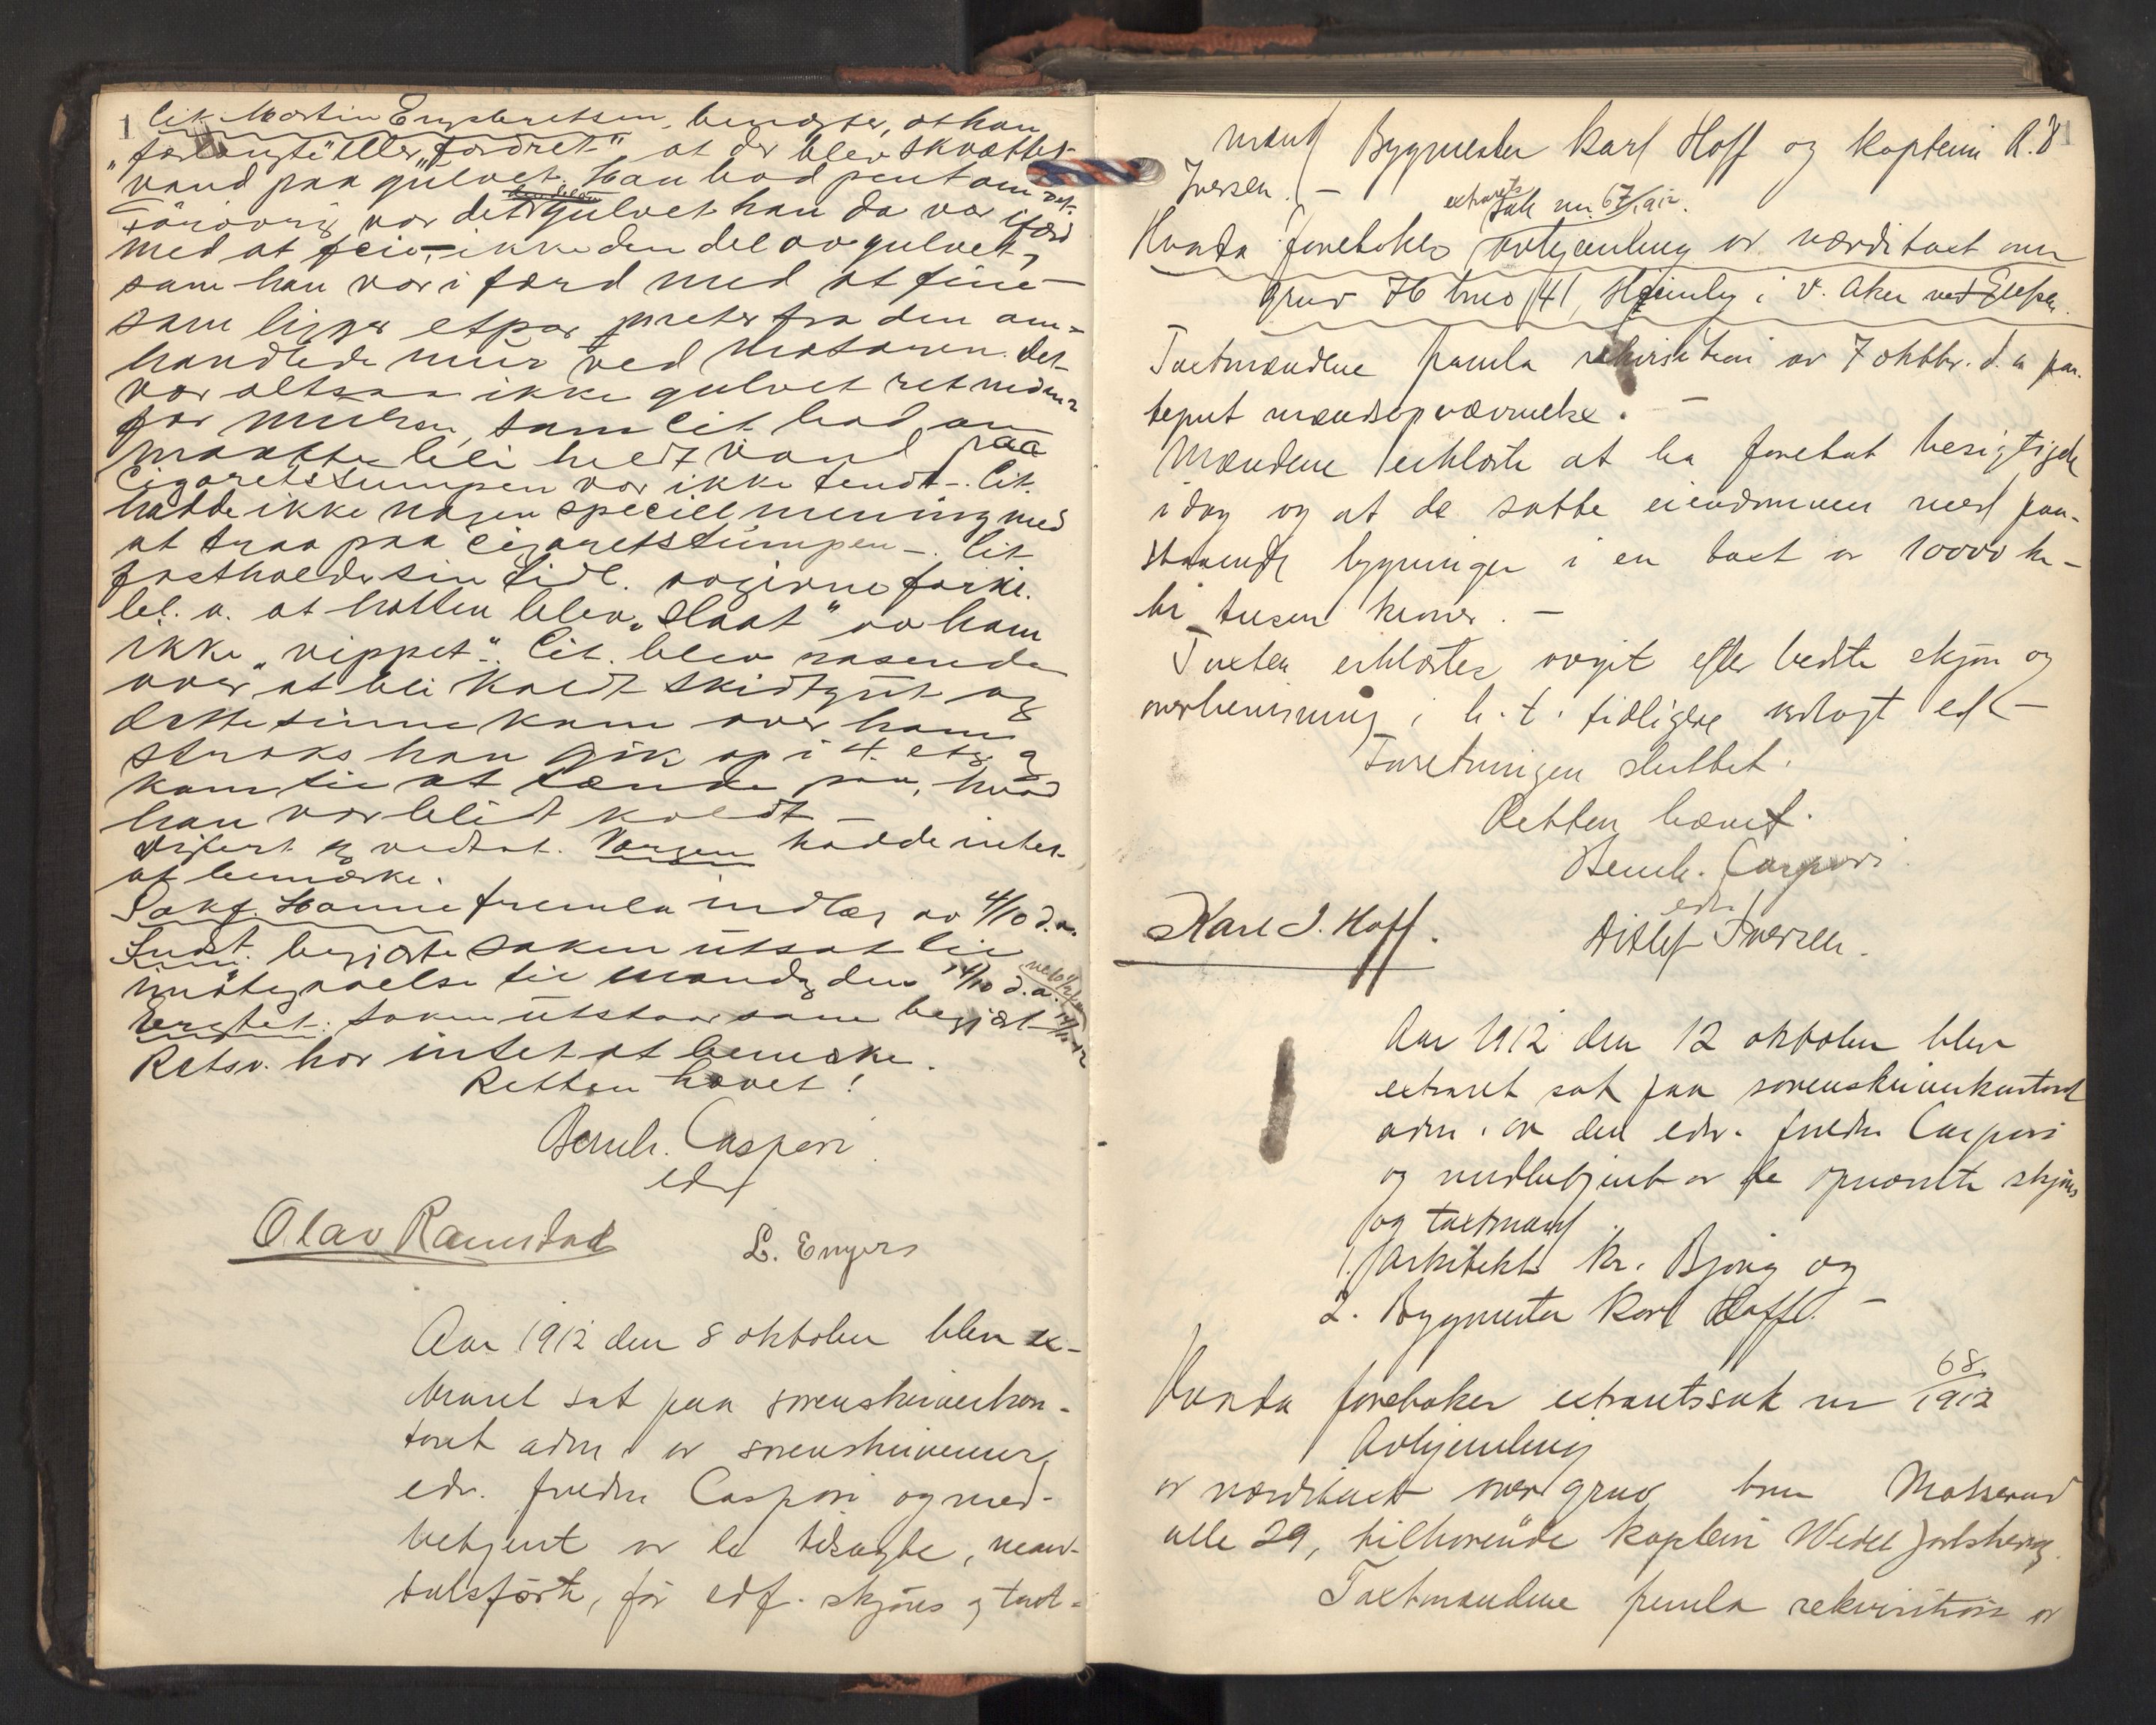 1
Cit. Martin Engebretsen, benegter, at han
"forlangte" eller "fordret" at der blev skvættet
vand paa gulvet. Han bad pent om det.
Forøvrig var det gulvet han da var ifærd
med at feie, ikke den del av gulvet,
som han var i færd med at feie
som ligger etpar meter fra den om-
handlede mur ved motoren. Det
var altsaa ikke gulvet ret neden-
for muren, som cit. bad om
maatte bli heldt vand paa
Cigaretstumpen var ikke tendt –. Cit.
hadde ikke nogen speciell mening med
at traa paa cigaretstumpen –. Cit
fastholder sin tidl. avgivne forkl.
bl. a. at hatten blev "slaat" av ham
ikke "vippet". Cit. blev rasende
over at bli kaldt skidtgut og
dette sinne kom over ham
straks han gik op i 4. etg. og
kom til at tænke paa, hvad
han var blit kaldt –
Oplæst og vedtat. Vergen hadde intet
at bemerke.
Sakf. Hanne fremla indlæg av 4/10 d.a.
Indst. begjærte saken utsat til
imøtegaaelse til mandag den 14/10 d.a.
Eragtet: Saken utstaar som begjært
Retsv. har intet at bemerke.
Retten hævet!
Bernh. Caspari
edv
Olav Ramstad
L. Engers
Aar 1912 den 8 oktober blev ex-
traret sat paa sorenskriverkon-
toret adm. av sorenskriveren v/
edv. fuldm Caspari og med-
betjent av de tilsagte, mand-
talsførte, før edf. skjøns og taxt-
mænd Bygmester Karl Hoff og kaptein A. D
Iversen. –
extrarets
Sak nr. 67/1912.
Hvorda foretokes avhjemling av værditaxt over
gnr 36 bno 141, Heimly i V. Aker
Taxtmændene fremla rekvisition av 7 oktbr. d. a paa-
tegnet mandsopnævnelse. –
Mændene erklærte at ha foretat besigtigelse
idag og at de satte eiendommen med paa-
staaende bygninger i en taxt av 10000 kr –
ti tusen kroner. –
Taxten erklærtes avgit efter bedste skjøn og
overbevisning i h. t. tidligere avlagt ed –
Forretningen sluttet.
Retten hævet.
Bernh. Caspari
edv
Karl J. Hoff.
Ditlef Iversen.
Aar 1912 den 12 oktober blev
extraret sat paa sorenskriverkontoret
adm. av den edv. fuldm Caspari
og medbetjent av de opnævnte skjøns
og taxtmænd
1. Arkitekt Kr. Bjong og
2. Bygmester Karl Hoff –
Hvorda foretokes extraretssak nr 68/1912
Avhjemling
av værditaxt over gnr bnr
alle 29, tilhørende kaptein Wedel Jarlsberg.
Taxtmændene fremla rekvisition av